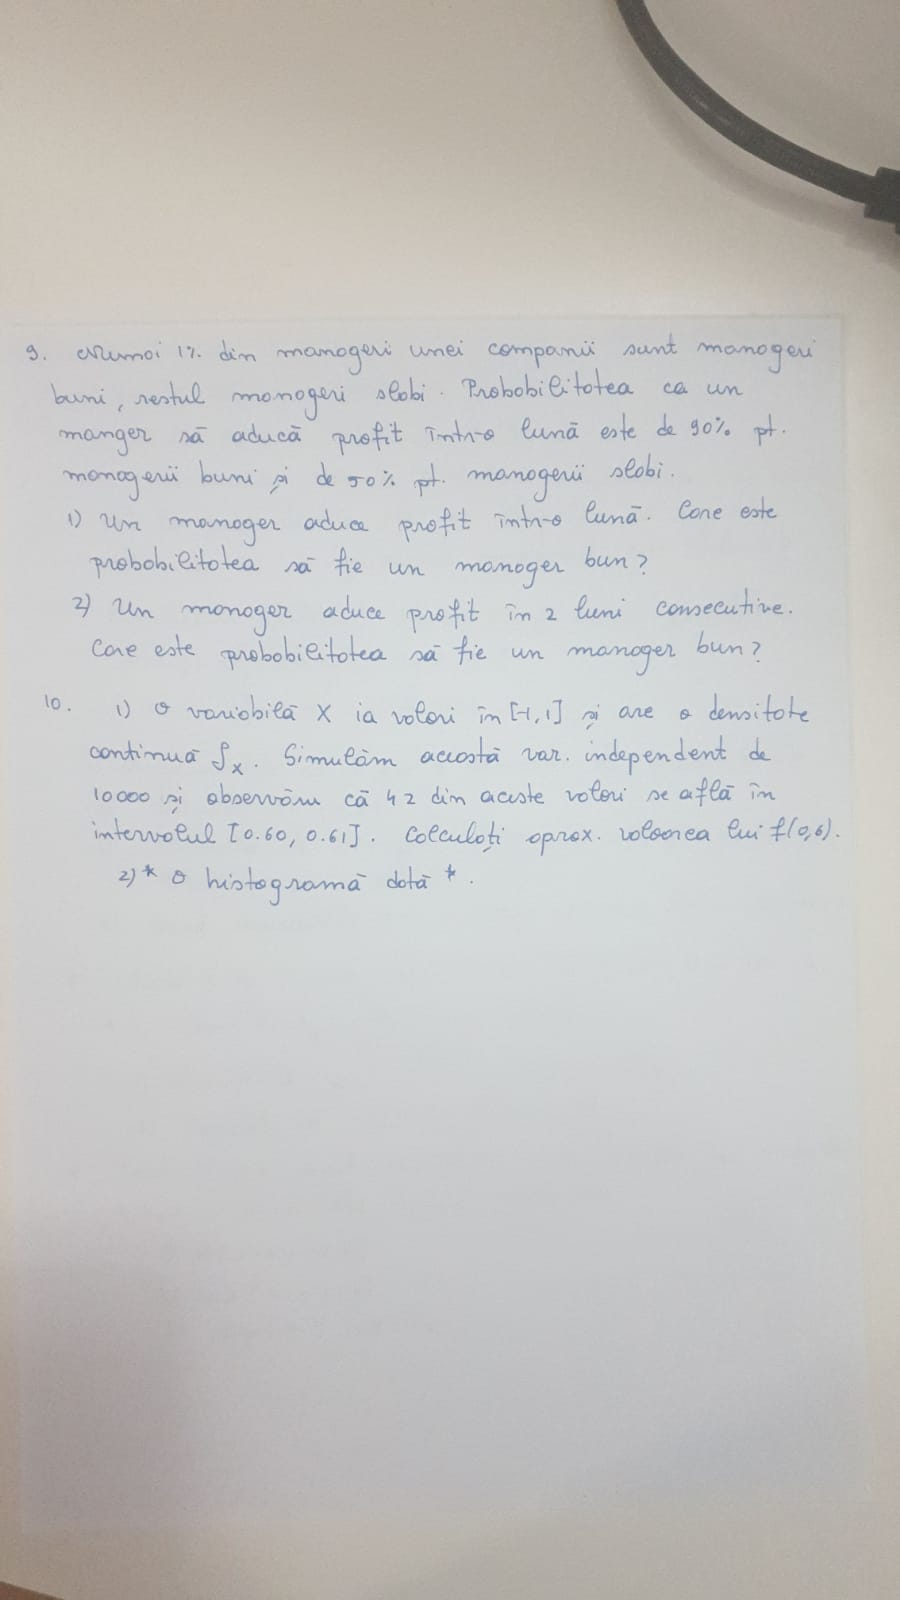 9. Numai 1% din manageri unei companii sunt manageri
buni, restul manageri slabi. Probabilitatea ca un
manger să aducă profit într-o lună este de 90% pt.
managerii buni și de 50% pt. managerii slabi.
1) Un manager aduce profit într-o lună. Care este
probabilitatea să fie un manager bun?
2) Un manager aduce profit în 2 luni consecutive.
Care este probabilitatea să fie un manager bun?
10. 1) O variabilă X ia valori în [-1,1] și are o densitate
continuă fₓ. Simulăm această var. independent de
10000 și observăm că 42 din aceste valori se află în
intervalul [0.60, 0.61]. Calculați aprox. valoarea lui f(0,6).
2)* O histogramă dată *.